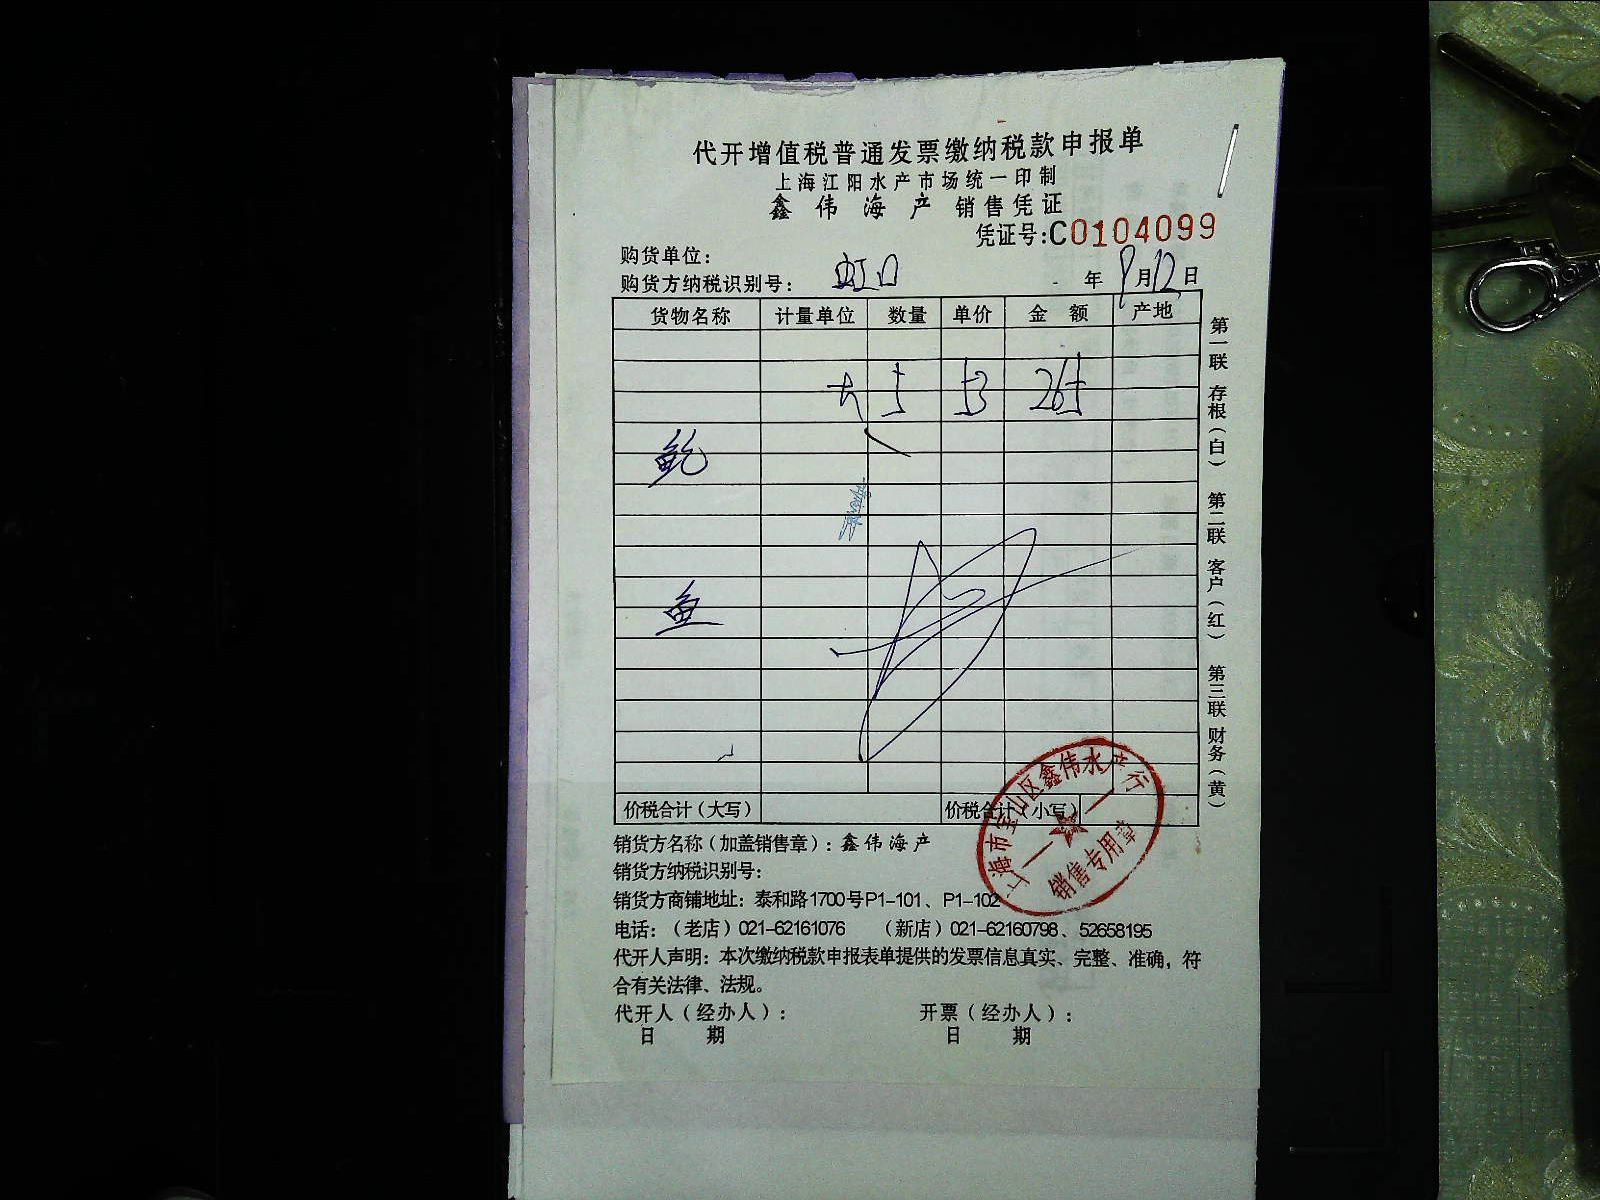 代开增值税普通发票缴纳税款申报单
上海江阳水产市场统一印制
鑫伟海产 销售凭证
凭证号:C0104099
购货单位:
购货方纳税识别号: 虹口 年 9月12日
货物名称 计量单位 数量 单价 金额 产地
大 5 53 265
鲍
鱼
价税合计(大写) 价税合计(小写)
销货方名称(加盖销售章): 鑫伟海产
销货方纳税识别号:
销货方商铺地址: 泰和路1700号P1-101、P1-102
电话:(老店)021-62161076 (新店)021-62160798、52658195
代开人声明: 本次缴纳税款申报表单提供的发票信息真实、完整、准确, 符
合有关法律、法规。
代开人(经办人): 开票(经办人):
日 期 日 期
第一联 存根(白) 第二联 客户(红) 第三联 财务(黄)
上海市宝山区鑫伟水产行
销售专用章